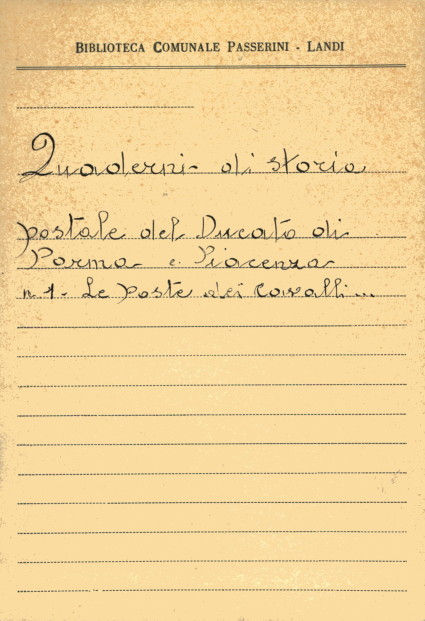 BIBLIOTECA COMUNALE PASSERINI - LANDI
Quaderni di storia
postale del Ducato di
Parma e Piacenza
n 1 - Le poste dei cavalli...